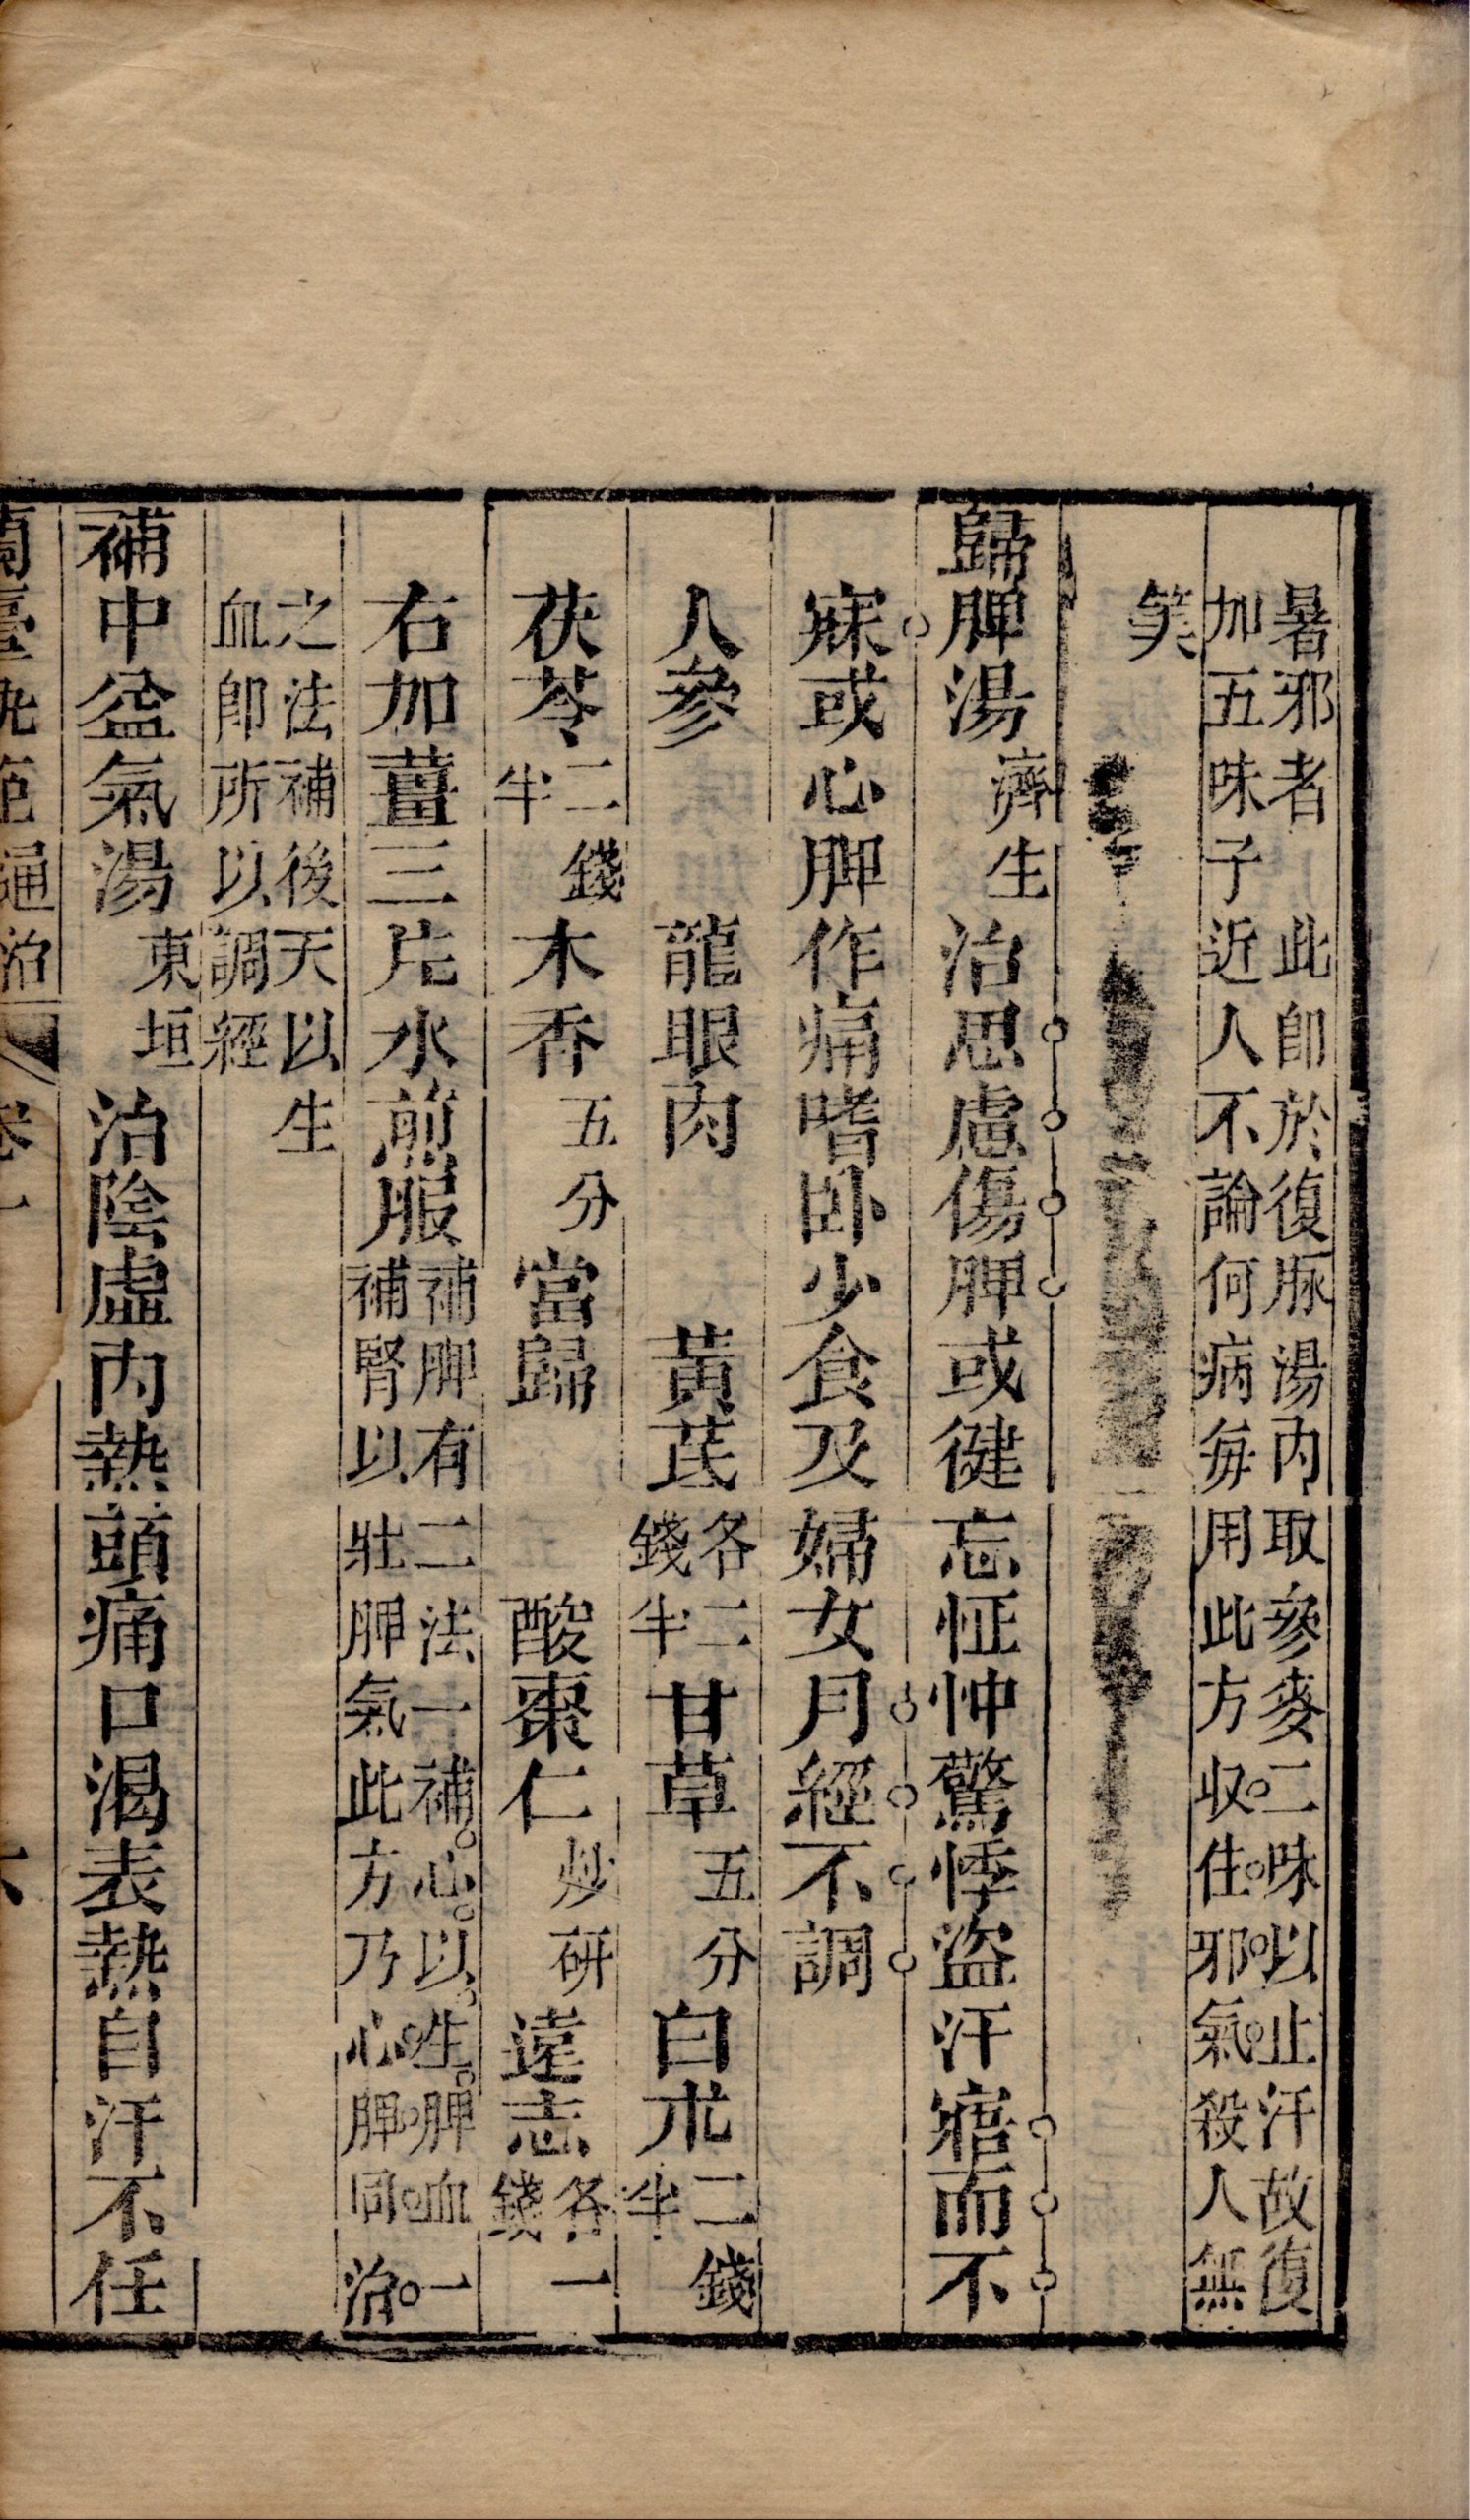 暑邪者　此即於復脉湯内取參麥二味以止汗故復
加五味子近人不論何病每用此方収住邪氣殺人無
笑
歸脾湯濟生治思慮傷脾或健忘怔忡驚悸盜汗寤而不
寐或心脾作痛嗜卧少食及婦女月經不調
人參　龍眼肉　黃芪各二錢半甘草五分白朮二錢半
茯苓二錢半木香五分當歸　酸棗仁炒研遠志各一錢
右加薑三片水煎服補脾有二法一補心以生脾血一
補腎以壯脾氣此方乃心脾同治
之法補後天以生
血即所以調經
補中益氣湯東垣治陰虛内熱頭痛口渴表熱自汗不任
蘭臺軌範通治　卷一　六